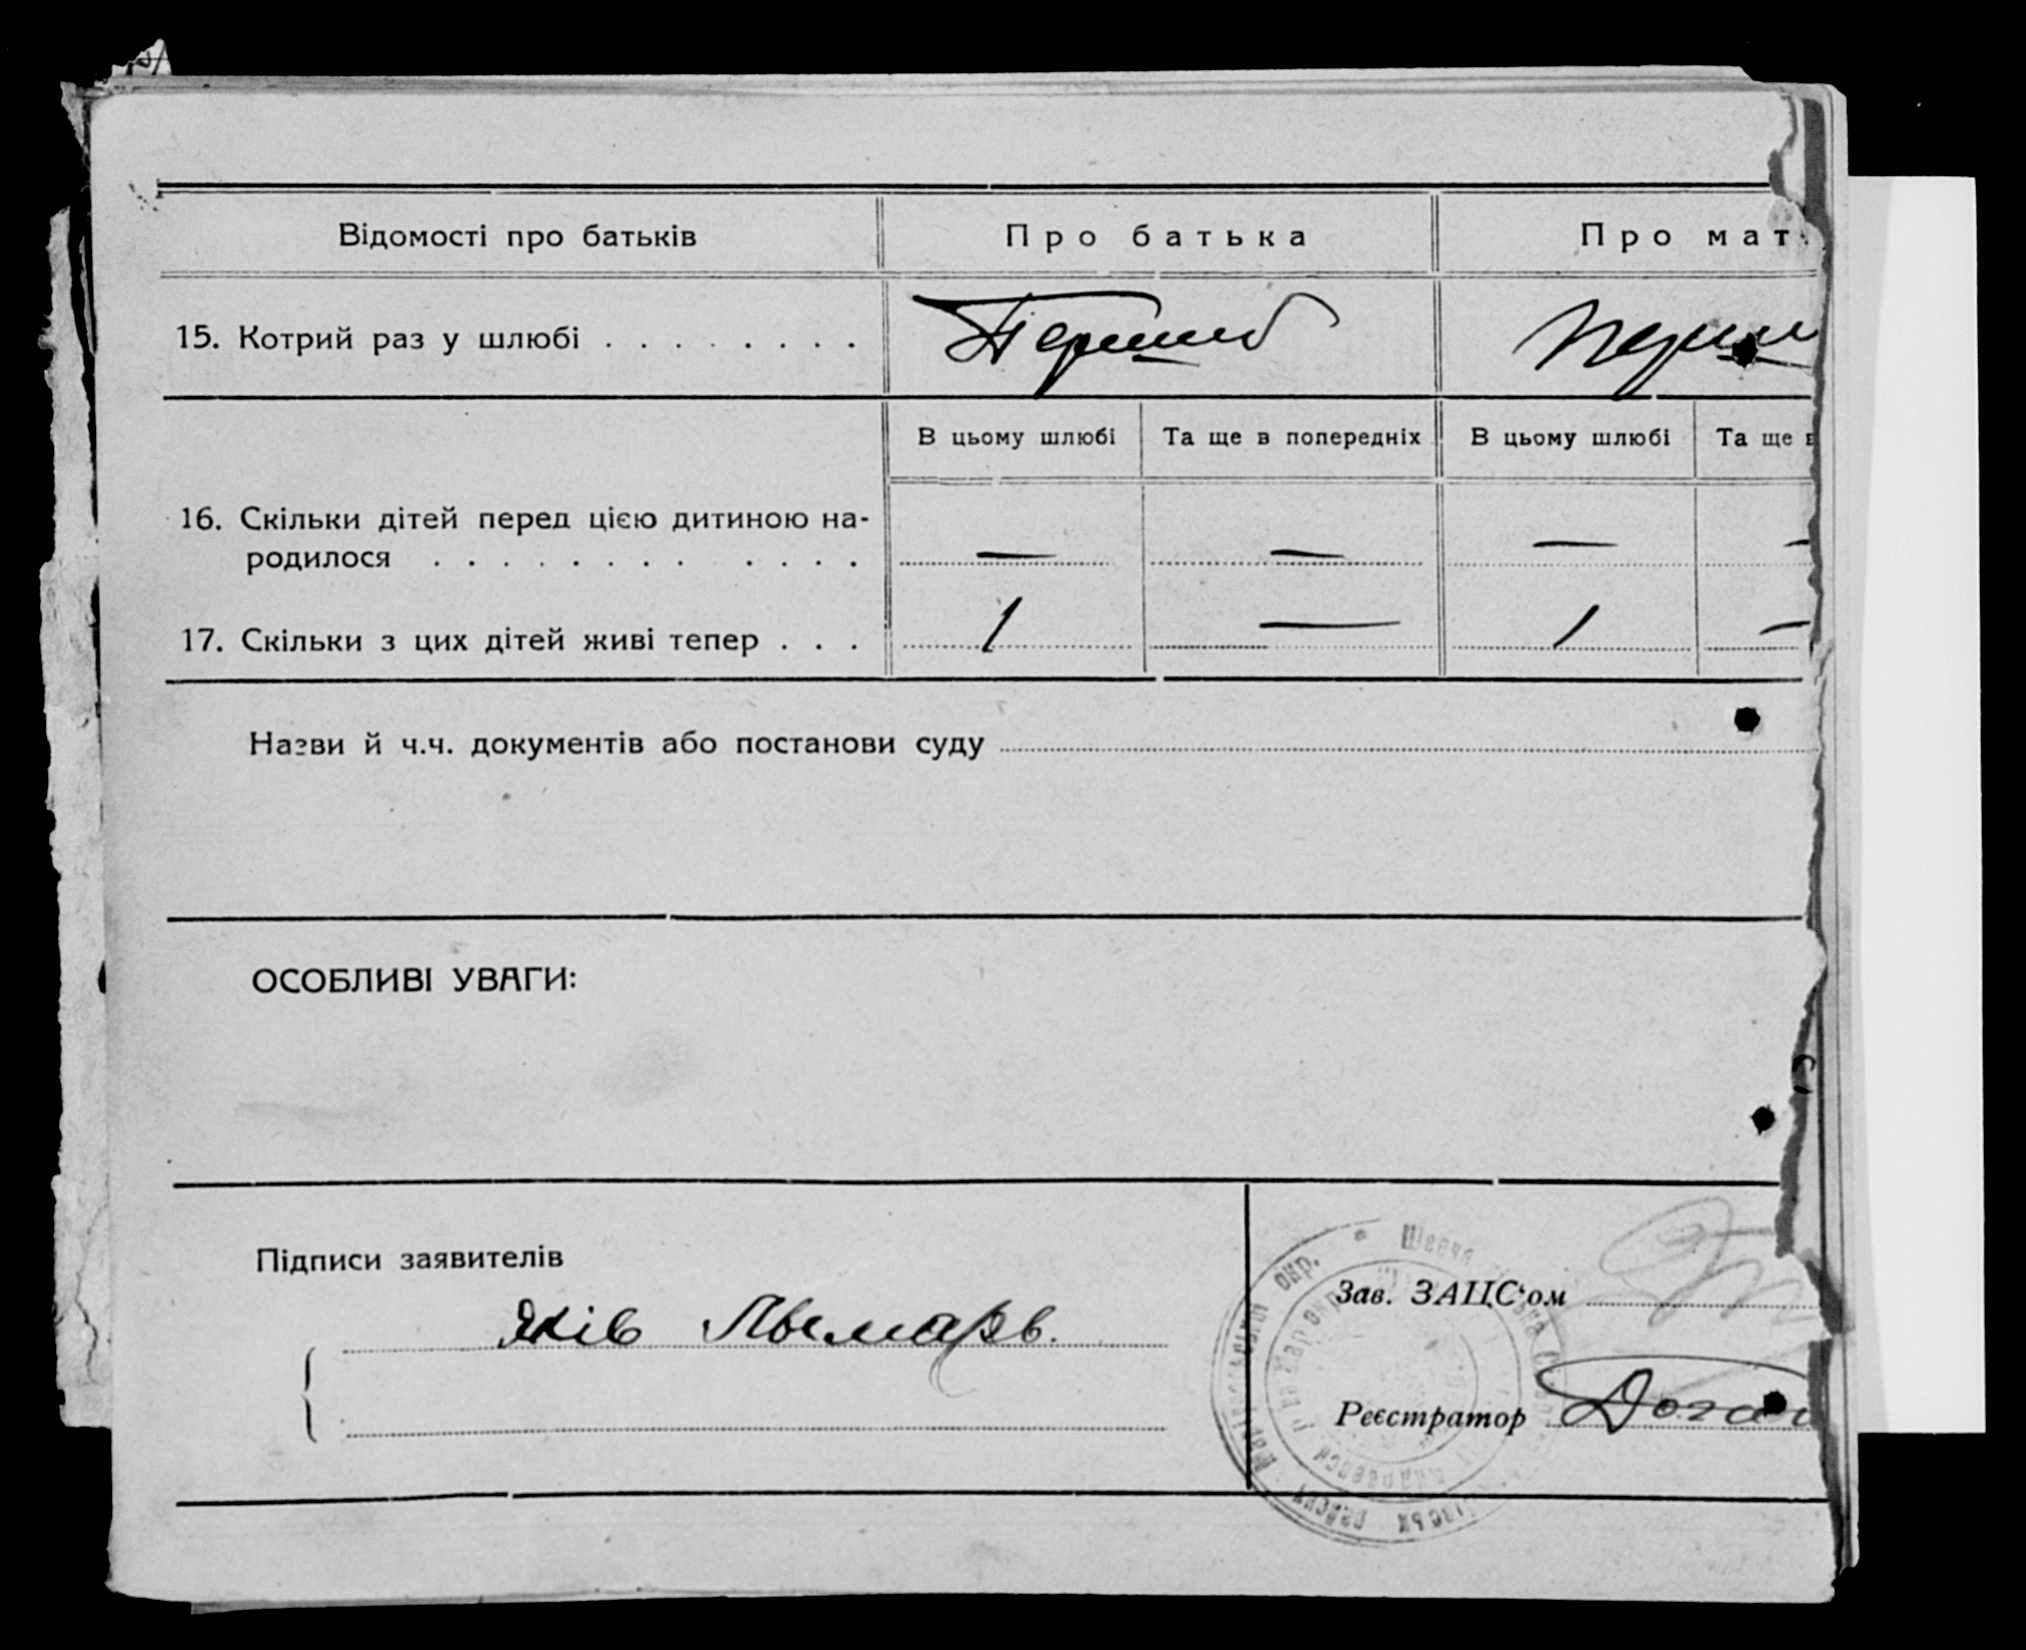 Відомості про батьків
Про батька
Про мат
15. Котрий раз у шлюбі . . . . . . . .
Перший
Перш
В цьому шлюбі
Та ще в попередніх
В цьому шлюбі
Та ще в
16. Скільки дітей перед цією дитиною на-
родилося . . . . . . . . . . . .
— — — —
17. Скільки з цих дітей живі тепер . . .
1 — 1 —
Назви й ч.ч. документів або постанови суду
ОСОБЛИВІ УВАГИ:
Підписи заявителів
Яків
Зав. ЗАЦС‘ом
Реєстратор
окр. * Шевч